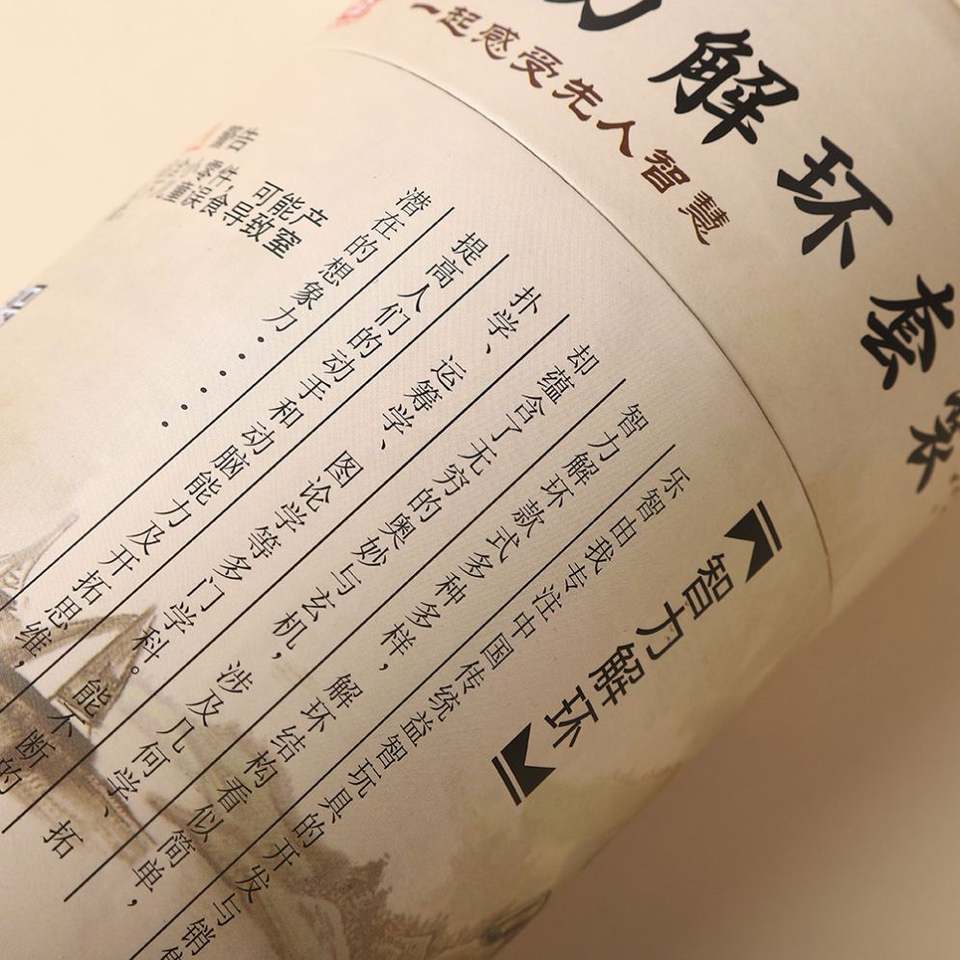 力解环套装
一起感受先人智慧
【智力解环】
乐智由我专注中国传统益智玩具的开发与销
智力解环款式多种多样,解环结构看似简单,
却蕴含了无穷的奥妙与玄机,涉及几何学、拓
扑学、运筹学、图论学等多门学科。能不断的
提高人们的动手和动脑能力及开拓思维,
潜在的想象力......
警告
小零件,可能产
童误食导致窒